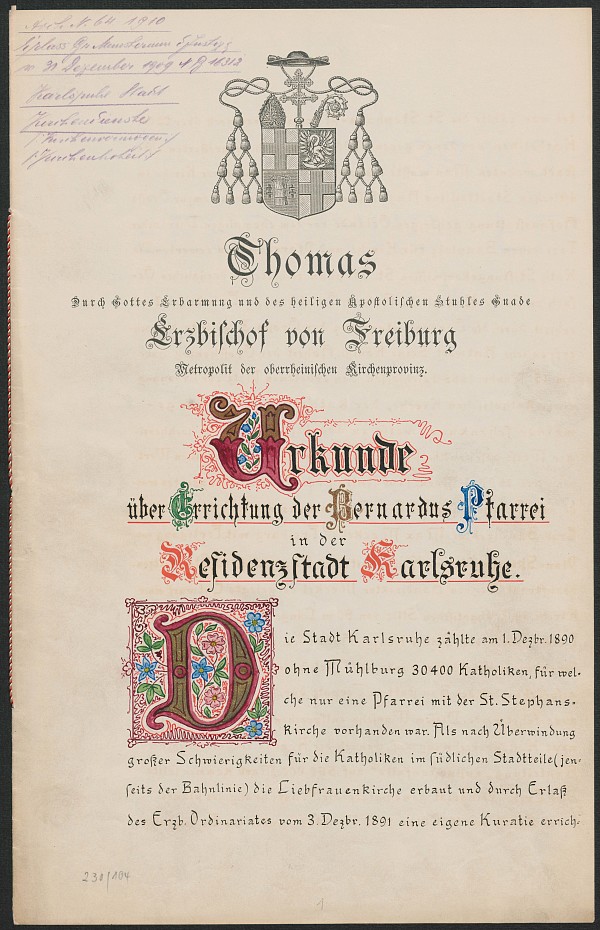 Arch. N. 64 1910
Erlass Gr. Ministerium d. Justiz
v. 31 Dezember 1909 N B 11312
Karlsruhe Stadt
Kirchendienste
Thomas
Durch Gottes Erbarmung und des heiligen Apostolischen Stuhles Gnade
Erzbischof von Freiburg
Metropolit der oberrheinischen Kirchenprovinz.
Urkunde
über Errichtung der Bernardus Pfarrei
in der
Residenzstadt Karlsruhe.
Die Stadt Karlsruhe zählte am 1. Dezbr. 1890
ohne Mühlburg 30400 Katholiken, für wel-
che nur eine Pfarrei mit der St. Stephans-
kirche vorhanden war. Als nach Überwindung
großer Schwierigkeiten für die Katholiken im südlichen Stadtteile (jen-
seits der Bahnlinie) die Liebfrauenkirche erbaut und durch Erlaß
des Erzb. Ordinariates vom 3. Dezbr. 1891 eine eigene Kuratie errich-
230/104
1